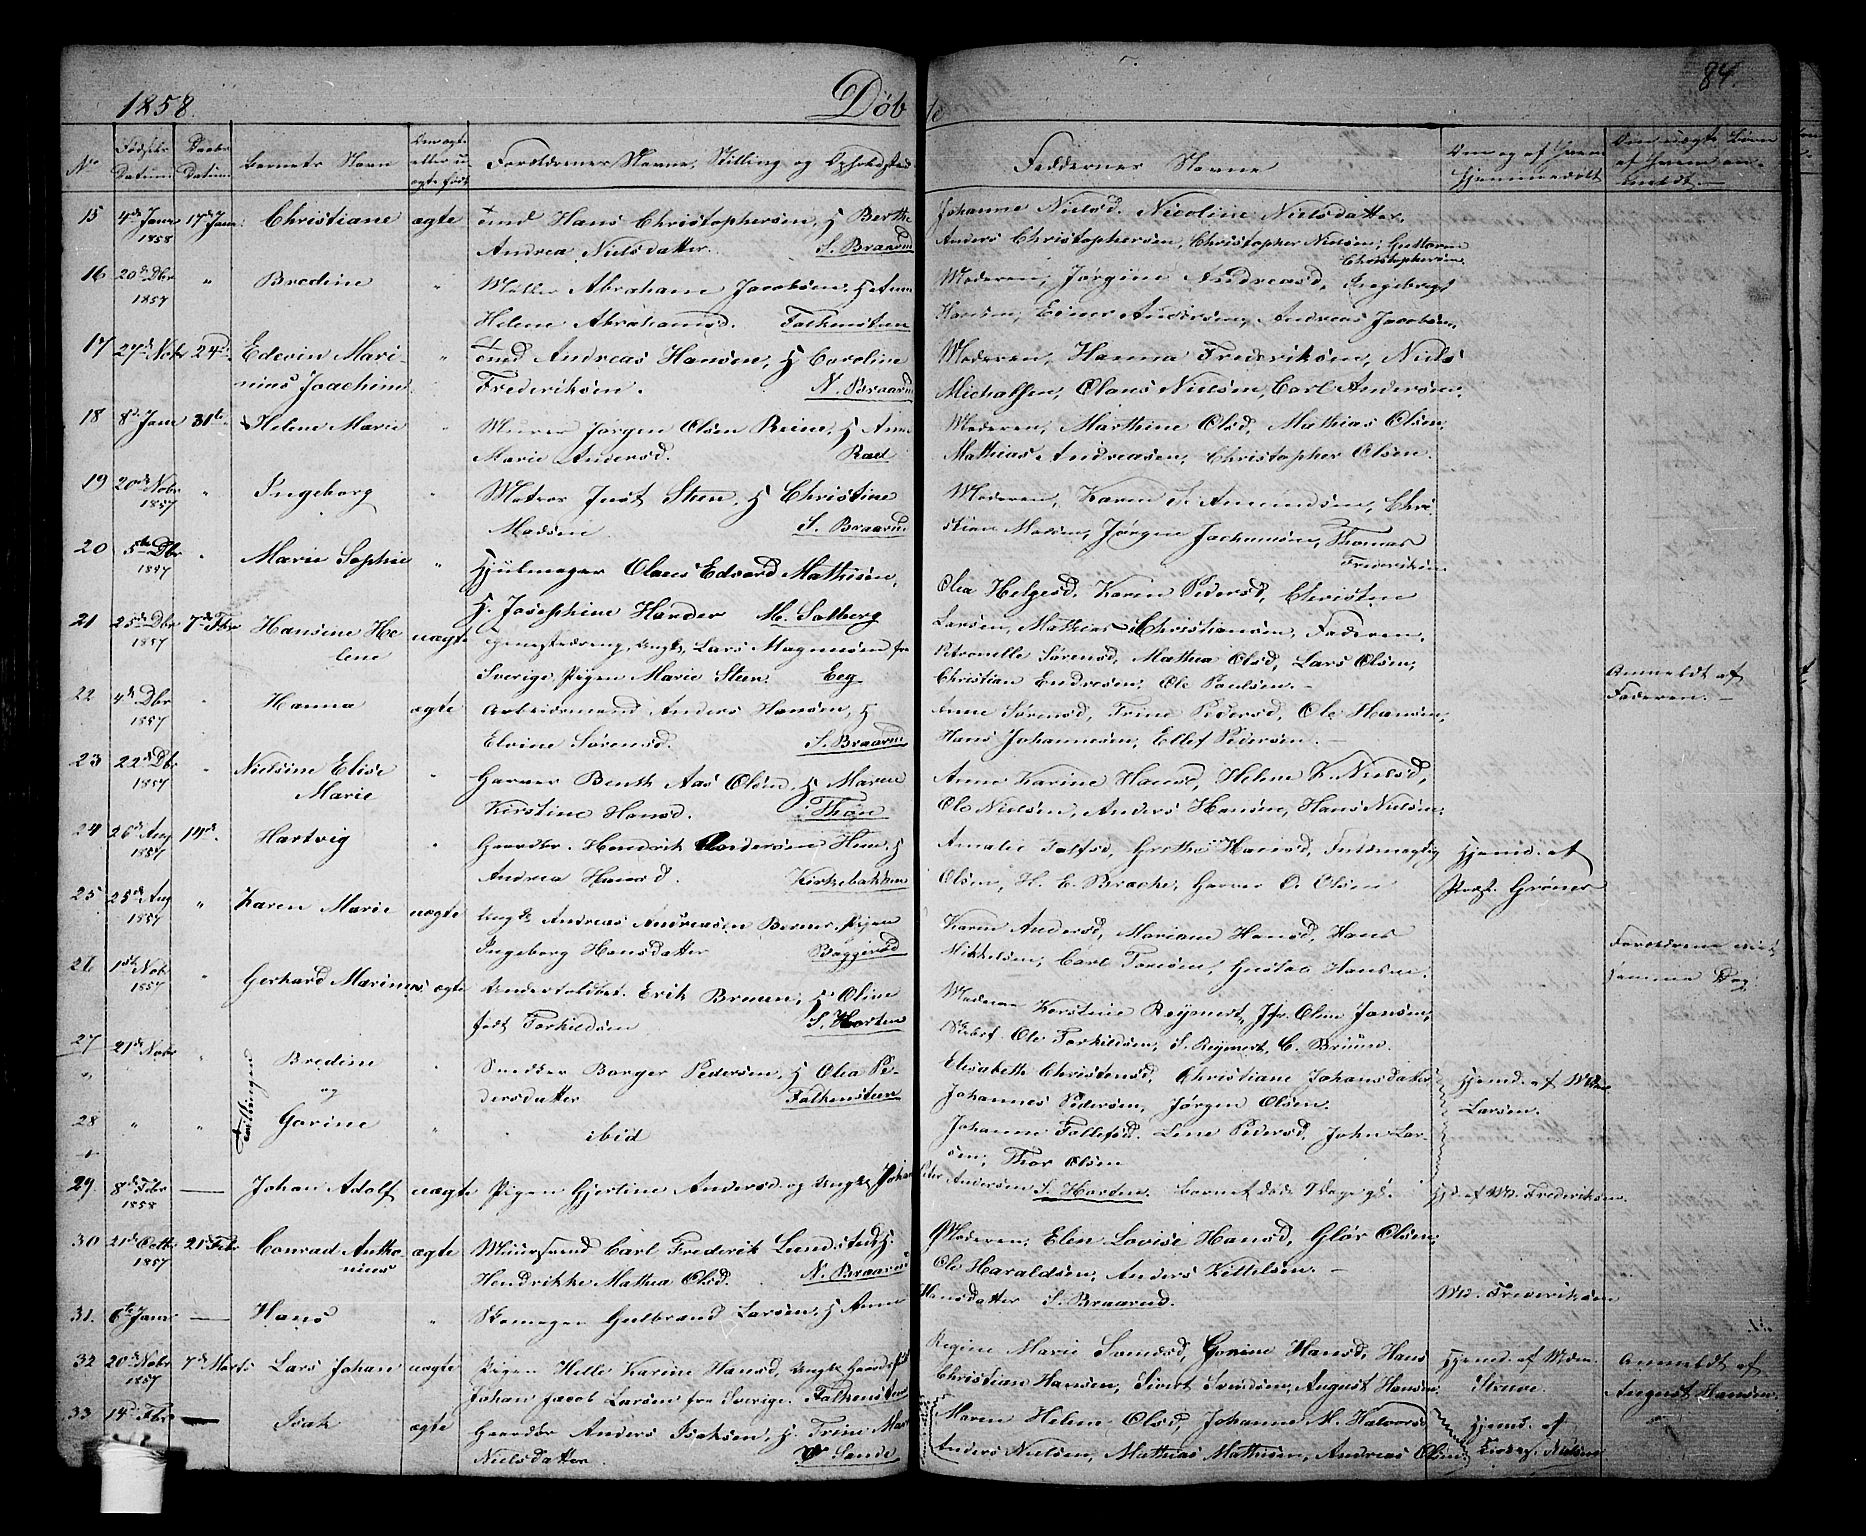 1858.
Døbte
84.
No
Fødsels Datum
Daabs Datum
Barnets Navn
Om ægte eller uægte født
Forældrenes Navne, Stilling og Opholdssted
Faddernes Navne
Om og af hvem hjemmedøbt
15 4de Janr 1858 17de Janr Christiane ægte
Hans Christophersen, H Berthe
Andrea Nielsdatter. S. Braarud
Johanne Nielsd. Nicoline Nielsdatter,
Anders Christophersen, Christopher Nielsen, Guttorm
Christophersen.
16 20de Dbr 1857 " Bredine "
Møller Abraham Jacobsen, H Anne
Helene Abrahamsd. Falkensteen
Moderen, Jørgine Andreasd, Ingebregt
Hansen, Einer Andersen, Andreas Jacobsen,
17 27de Nobr 24de Edevin Mari-
nius Joachim "
Andreas Hansen, H Caroline
Frederiksen. N. Braarud
Moderen, Hanna Frederiksen, Niels
Michalsen, Olaus Nielsen, Carl Andersen,
18 8de Janr 31te Helene Marie "
Murer Jørgen Olsen Reine, H Anne
Marie Andersd. Røed
Moderen, Marthine Olsd, Mathias Olsen,
Mathias Andreasen, Christopher Olsen.
19 20de Nobr 1857 " Ingeborg "
Matros Just Steen, H Christine
Madsen. S. Braarud
Moderen, Karen S. Amundsen, Chri-
stian Madsen, Jørgen Jochumsen, Thomas
Frederiksen
20 5te Dbr 1857 " Marie Sophie "
Hjulmager Olaus Edvard Mathisen,
H. Josephine Harder M. Solberg
Olea Helgesd, Karen Pedersd, Christen
Larsen, Mathias Christiansen, Faderen,
21 25de Dbr 1857 7de Febr Hansine He-
lene uægte
Ungk. Lars Magnusen fra
Sverige, Pigen Marie Steen. Eeg
Petronelle Sørensd, Mathea Olsd, Lars Olsen,
Christian Endresen, Ole Paulsen.
Anmeldt af
Faderen.
22 4de Dbr 1857 " Hanna ægte
Arbeidsmand Anders Hansen, H
Elvine Sørensd. S. Braarud
Anne Sørensd, Trine Pedersd, Ole Hansen,
Hans Johannesen, Ellef Pedersen.
23 22de Dbr 1857 " Nielsine Elise
Marie "
Garver Benth Aas Olsen, H Maren
Kirstine Hansd. Thon
Anne Karine Hansd, Helene K. Nielsd,
Ole Nielsen, Anders Hansen, Hans Nielsen,
24 26de Aug 1857 14de Hartvig "
Gaardbr. Hendrik Andersen Hem, H
Andrea Hansd. Kirkebakken
Amalie Tolfsd, Grethe Hansd, Fuldmægtig
Olsen, H. E. Brache, Garver O. Olsen
Hjemd. af
Præst Grøner
25 25de Aug 1857 " Karen Marie uægte
Ungk. Andreas Andreasen Berner, Pigen
Ingeborg Hansdatter Baggerød
Karen Andersd, Mariane Hansd, Hans
Mikkelsen, Carl Toresen, Gustav Hansen.
Forældrene viet
samme Dag
26 1ste Nobr 1857 " Gerhard Marinus ægte
Erik Bruun, H Oline
født Torkildsen S. Horten
Madame Kirstine Reymert, Jfr. Oline Jansen,
Ole Torkildsen, S. Reymert, C. Bruun.
27 21de Nobr " Tvillinger Bredine "
og
Smeddr Borger Pedersen, H Olea Pe-
dersdatter Falkensteen
Elisabeth Christensd, Christiane Johansdatter
Johannes Pedersen, Jørgen Olsen.
Hjemd. af
Larsen.
28 " " Gorine " ibid
Johanne Tollefsd. Lene Pedersd, John Lar-
sen, Thor Olsen
29 8de Febr 1858 — Johan Adolf uægte
Pigen Gjertine Andersd og Ungk. Johan Peter Andersen S. Horten. Barnet døde 9 Dage gl.
Hjd. af Md. Frederiksen.
30 21de Octb 1857 21de Febr Conrad Antho-
nius ægte
Muursvend Carl Frederik Lundsted, H.
Hendrikke Mathea Olsd. N. Braarud
Moderen, Elen Lovise Hansd, Glør Olsen,
Ole Haraldsen, Anders Kittelsen.
31. 6te Janr — Hans "
Skomager Gulbrand Larsen, H Anne Hansdatter S. Braarud.
Md. Frederiksen
32 20de Nobr 1857 7de Marts Lars Johan uægte
Pigen Helle Karine Hansd, Ungk.
Johan Jacob Larsen fra Sverige. Falkensteen
Regine Marie Svendsd, Gorine Hansd, Hans
Christian Hansen, Sivert Svendsen, August Hansen
Hjemd. af Mdm.
Struve
Anmeldt af
August Hansen.
33 14de Febr — Isak ægte
Gaardbr Anders Isaksen, H. Trine Mar
Nielsdatter. Sande
Maren Helene Olsd, Johanne M. Halvorsd
Anders Nielsen, Mathias Mathisen, Andreas Olsen.
Hjemd. af
Nielsen